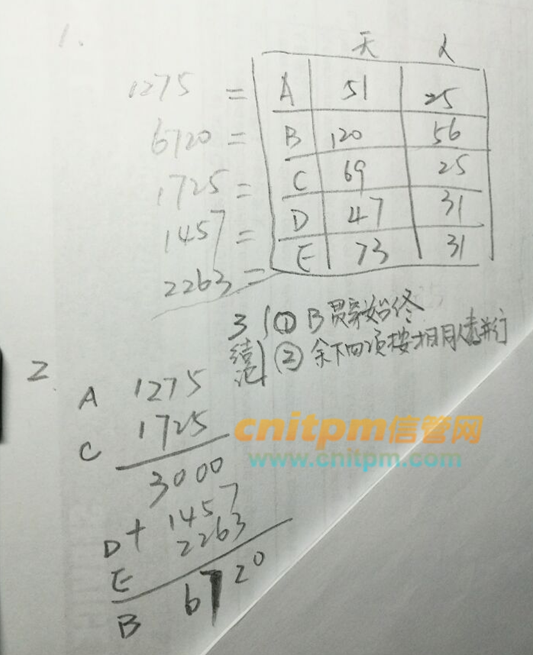 1.
天 人
1275 = A 51 25
6720 = B 120 56
1725 = C 69 25
1457 = D 47 31
2263 = E 73 31
3 结论 ① B贯穿始终
② 余下四项按相同人数并行
2.
A 1275
C 1725
3000
D + 1457
E 2263
B 6720
cnitpm信管网
www.cnitpm.com